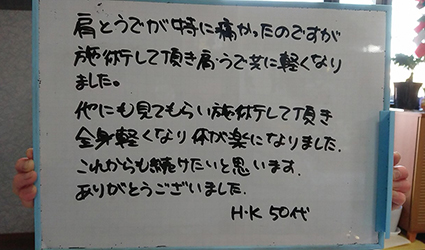 肩とうでが特に痛かったのですが
施術して頂き肩・うで共に軽くなり
ました。
他にも見てもらい施術して頂き
全身軽くなり体が楽になりました.
これからも続けたいと思います.
ありがとうございました.
H・K 50代